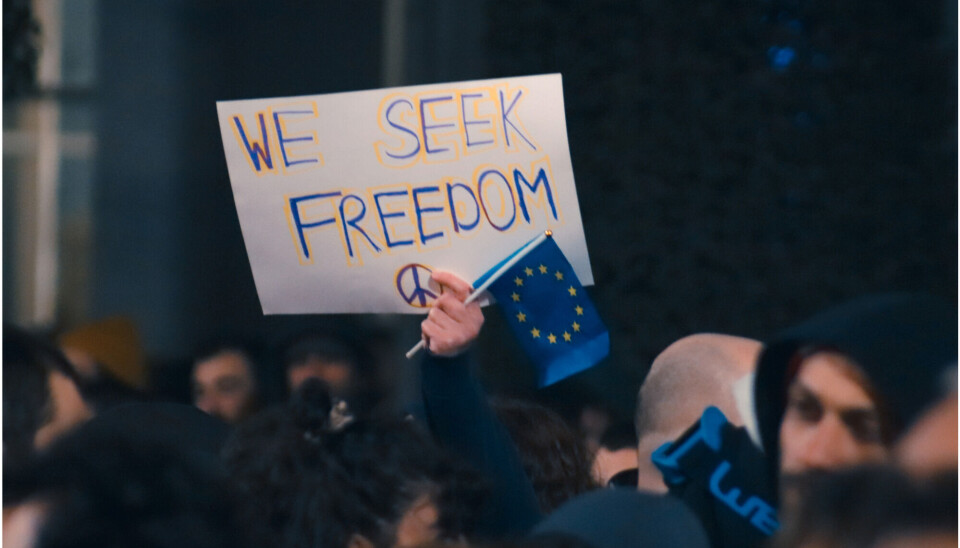 WE SEEK
FREEDOM